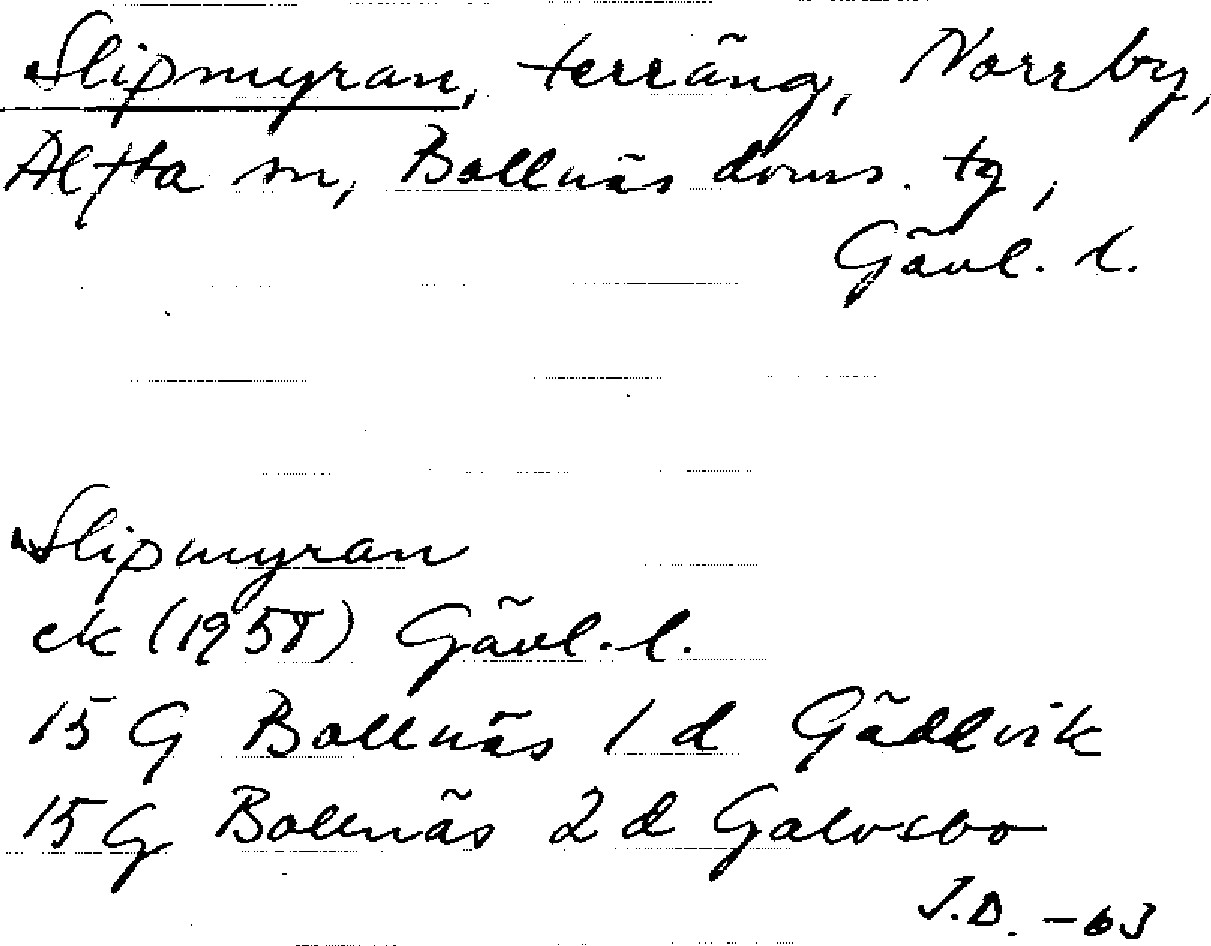 Slipmyran, terräng, Norrby,
Alfta sn, Bollnäs doms. tg,
Gävl. l.
Slipmyran
ek (1958) Gävl. l.
15 G Bollnäs 1 d Gäddvik
15 G Bollnäs 2 d Galvsbo
J.D. -63